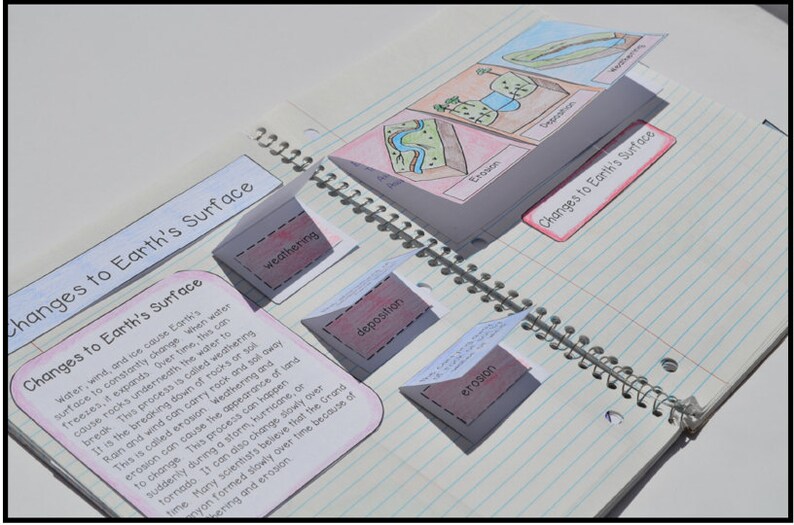 Changes to Earth's Surface
Changes to Earth's Surface
Water, wind, and ice cause Earth's
surface to constantly change. When water
freezes, it expands. Over time, this can
cause rocks underneath the water to
break. This process is called weathering.
It is the breaking down of rocks or soil.
Rain and wind can carry rock and soil away.
This is called erosion. Weathering and
erosion can cause the appearance of land
to change. This process can happen
suddenly during a storm, hurricane, or
tornado. It can also change slowly over
time. Many scientists believe that the Grand
Canyon formed slowly over time because of
weathering and erosion.
weathering
deposition
erosion
Weathering
Deposition
Erosion
Changes to Earth's Surface